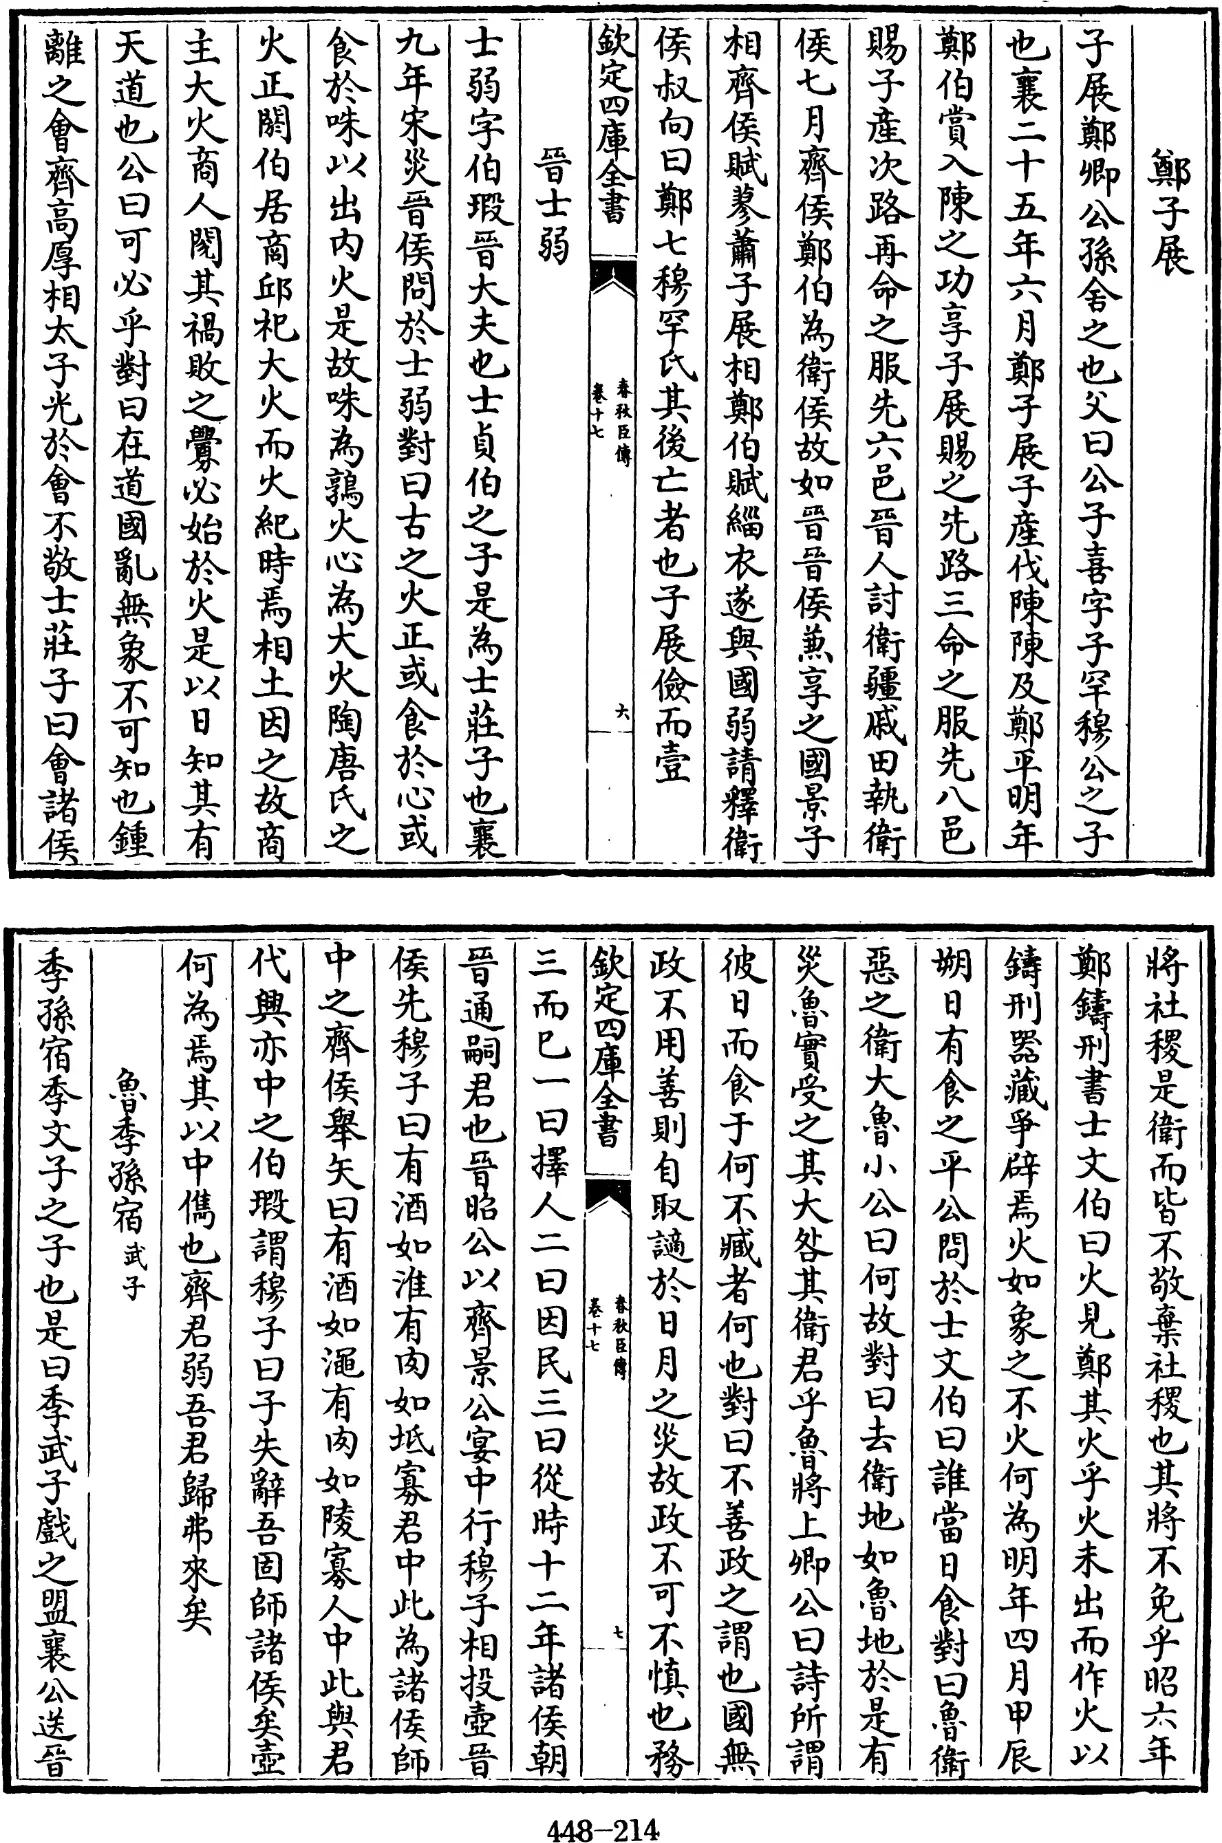 鄭子展
子展鄭卿公孫舍之也父曰公子喜字子罕穆公之子
也襄二十五年六月鄭子展子產伐陳陳及鄭平明年
鄭伯賞入陳之功享子展賜之先路三命之服先八邑
賜子產次路再命之服先六邑晉人討衛疆戚田執衛
侯七月齊侯鄭伯為衛侯故如晉晉侯兼享之國景子
相齊侯賦蓼蕭子展相鄭伯賦緇衣遂與國弱請釋衛
侯叔向曰鄭七穆罕氏其後亡者也子展儉而壹
欽定四庫全書
春秋臣傳
卷十七
六
晉士弱
士弱字伯瑕晉大夫也士貞伯之子是為士莊子也襄
九年宋災晉侯問於士弱對曰古之火正或食於心或
食於咮以出内火是故咮為鶉火心為大火陶唐氏之
火正閼伯居商邱祀大火而火紀時焉相土因之故商
主大火商人閱其禍敗之釁必始於火是以日知其有
天道也公曰可必乎對曰在道國亂無象不可知也鍾
離之會齊高厚相太子光於會不敬士莊子曰會諸侯
將社稷是衛而皆不敬棄社稷也其將不免乎昭六年
鄭鑄刑書士文伯曰火見鄭其火乎火未出而作火以
鑄刑器藏爭辟焉火如象之不火何為明年四月甲辰
朔日有食之平公問於士文伯曰誰當日食對曰魯衛
惡之衛大魯小公曰何故對曰去衛地如魯地於是有
災魯實受之其大咎其衛君乎魯將上卿公曰詩所謂
彼日而食于何不臧者何也對曰不善政之謂也國無
政不用善則自取謫於日月之災故政不可不慎也務
欽定四庫全書
春秋臣傳
卷十七
七
三而已一曰擇人二曰因民三曰從時十二年諸侯朝
晉通嗣君也晉昭公以齊景公宴中行穆子相投壺晉
侯先穆子曰有酒如淮有肉如坻寡君中此為諸侯師
中之齊侯舉矢曰有酒如澠有肉如陵寡人中此與君
代興亦中之伯瑕謂穆子曰子失辭吾固師諸侯矣壺
何為焉其以中儁也齊君弱吾君歸弗來矣
魯季孫宿武子
季孫宿季文子之子也是曰季武子戲之盟襄公送晉
448-214